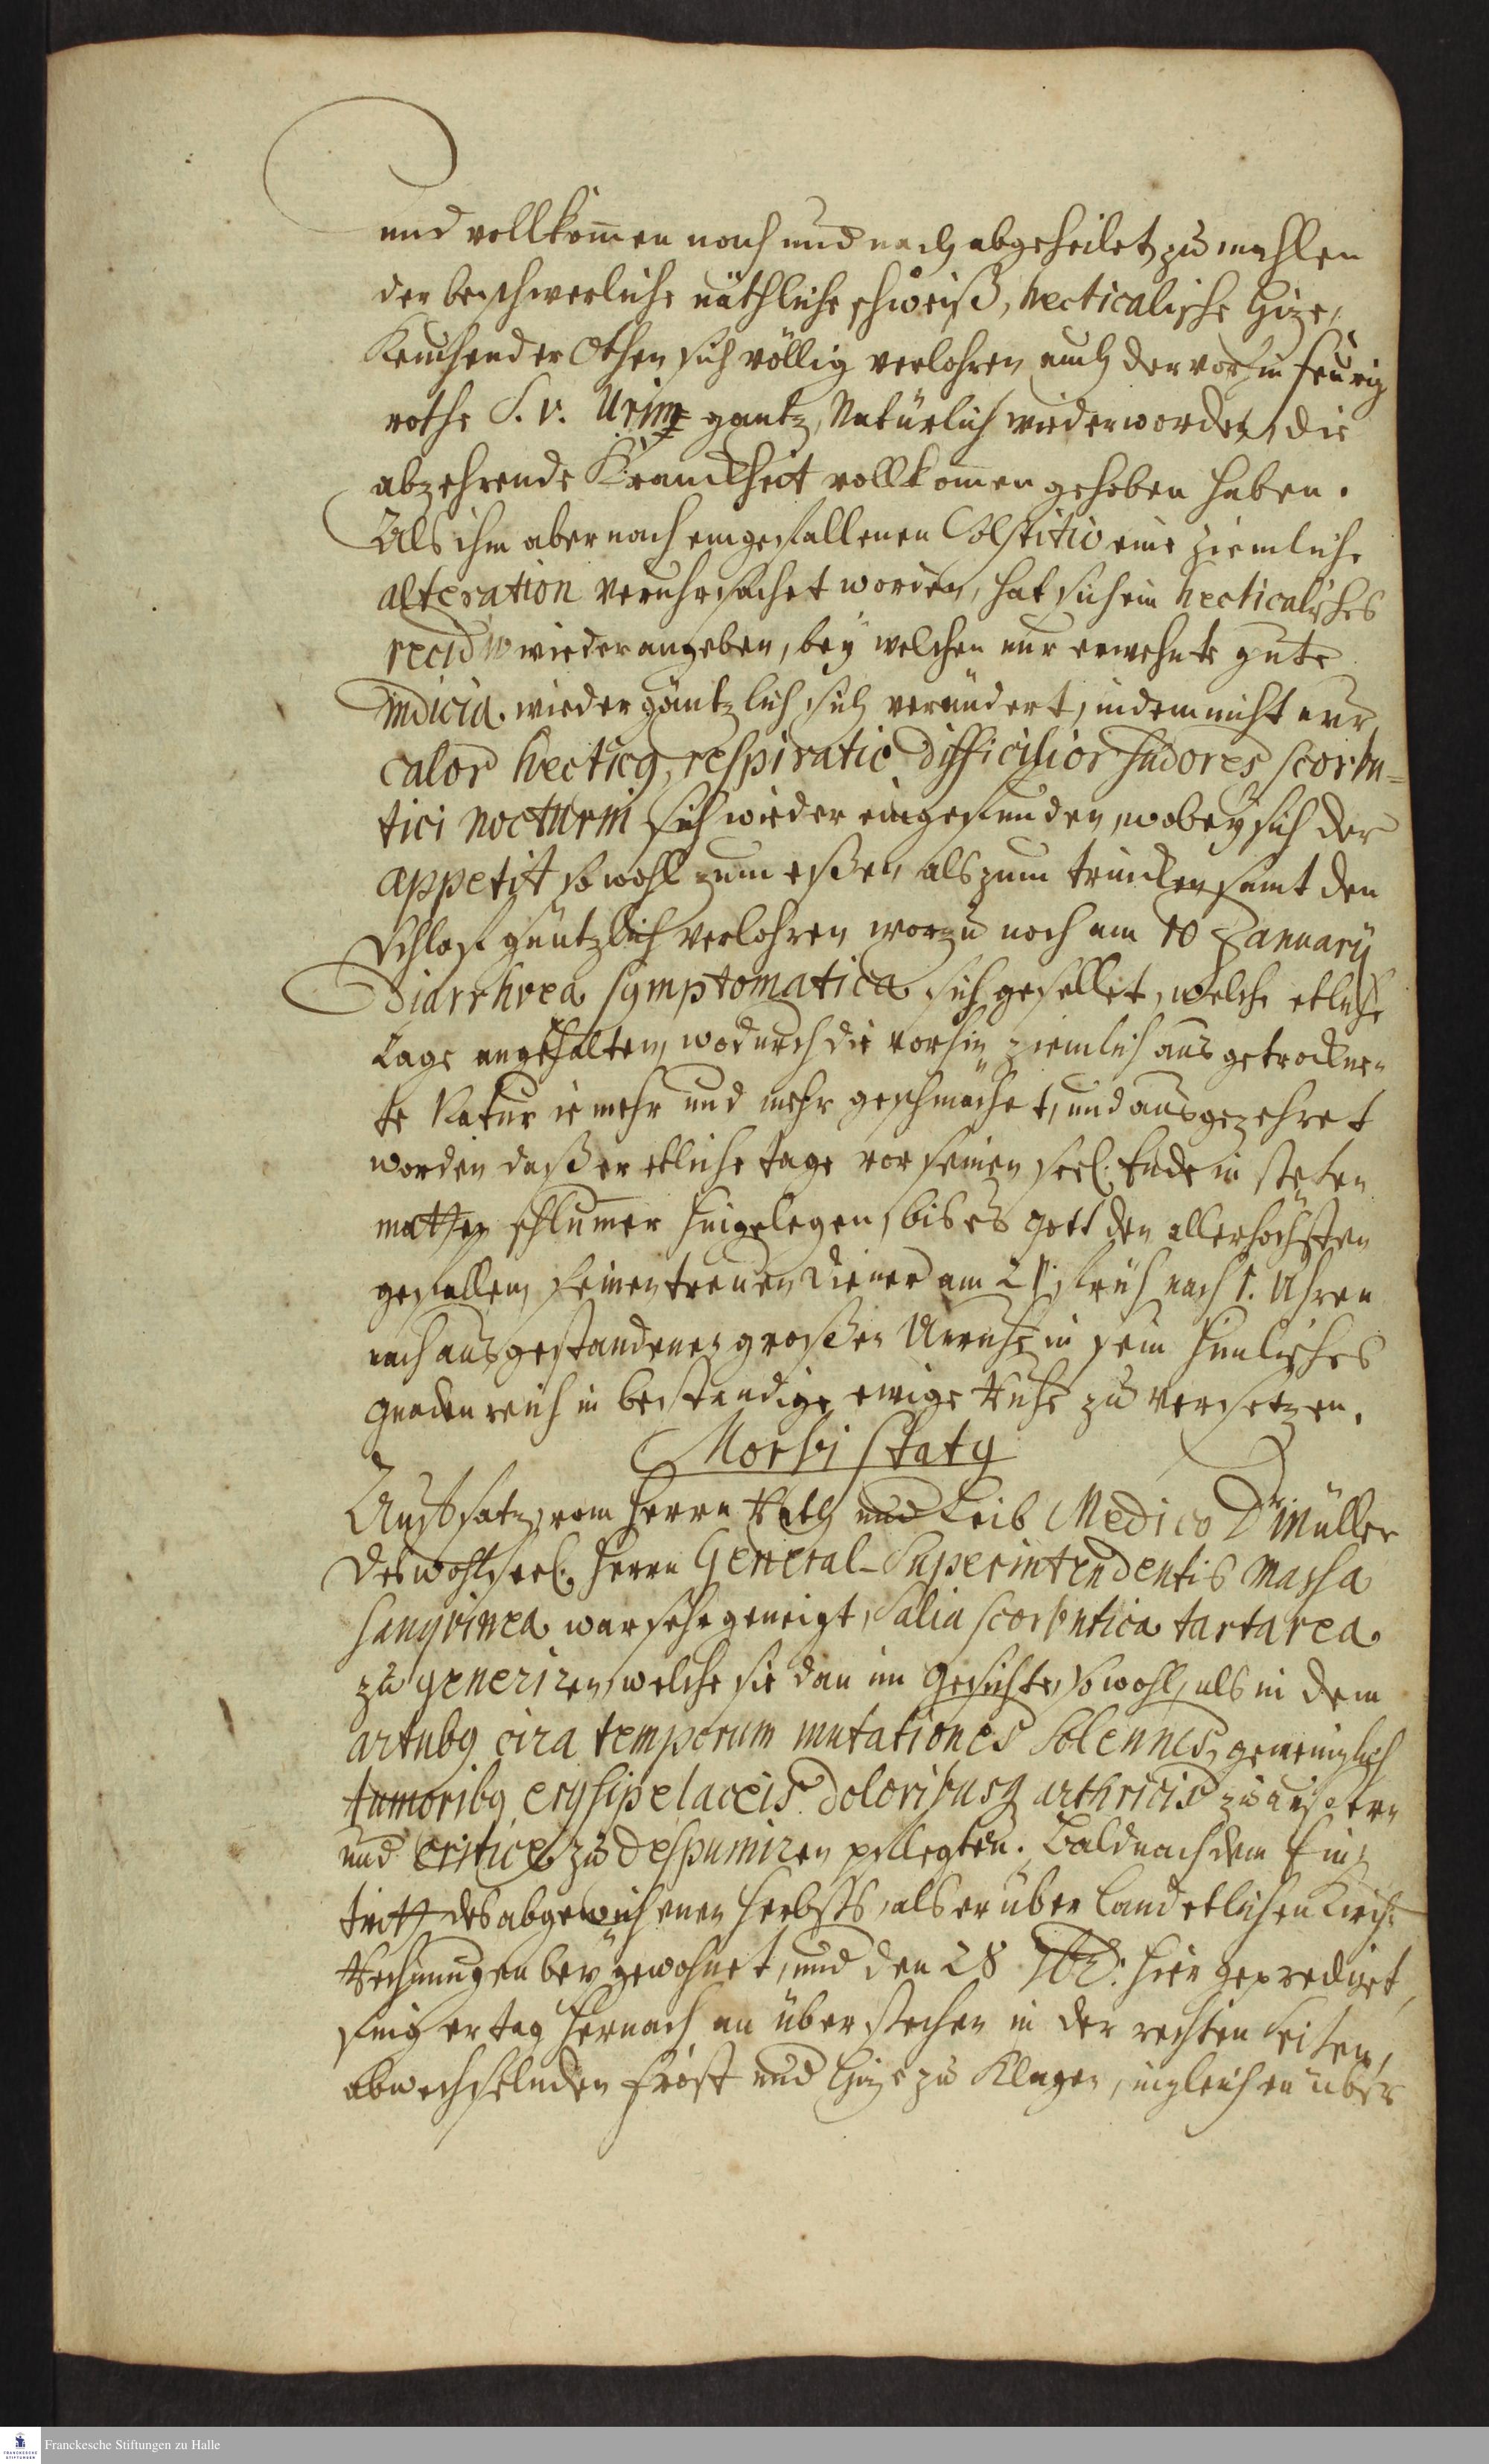 und vollkom̅en nach und nach abgeheilet, zu mahlen
der beschwerliche näthliche schweiß, hecticalische Hize,
Keuchender Othen sich völlig verlohren, auch der vorhin feurig
rothe S. v. Urin gantz Natürlich wieder worden, die
abzehrende Kranckheit vollkom̅en gehoben haben.
Als ihm aber nach eingefallenen Solstitio eine ziemliche
alteration veruhrsachet worden, hat sich ein hecticalisches
recidiv wieder angeben, bey welchen nur erwehnte gute
indicia wieder gäntzlich sich verändert, indem nicht nur
calor hecticq, respiratio difficilior sudores scorbu=
tici nocturni sich wieder eingefunden, wobey sich der
appetit sowohl zum eßen, als zum trincken samt den
Schlaf gäntzlich verlohren, worzu noch am 10 January
Diarrhœa symptomatica sich gesellet, welche etliche
Tage angehalten, wodurch die vorhin ziemlich ausgetrockne-
te Natur ie mehr und mehr geschwächet, und ausgezehret
worden daß er etliche Tage vor seinen seel. Ende in steten
matten schlumer hingelegen, bis es Gott den allerhöchsten
gefallen, seinen treuen Diener am 21. früh nach 1. Uhren
nach ausgestandener großer Unruhe in sein himlisches
Gnadenreich in bestendige ewige Ruhe zu versetzen.
Morbi statq
Auffsatz, vom Herrn Rath und Leib Medico Dr Müller
Des wohlseel. Herrn General-Superintendentis Massa
sangvinea war sehr geneigt, Salia scorbutica tartarea
zu generiren, welche sie dan im Gesichte, sowohl, als in dem
artubq circa temporum mutationes Solennes, gemeiniglich
tumoribq erysipelaceis doloribusq arthricis zu äusern
und critice zu despumiren pflegten. Bald nach dem Ein=
tritt des abgewichenen Herbsts, als er über Land etlichen Kirch=
Rechnungen beygewohnet, und den 28 7br: hier geprediget,
fing er tag hernach an über stechen in der rechten Seiten,
abwechselnden Frost und Hize zu Klagen, ingleichen über